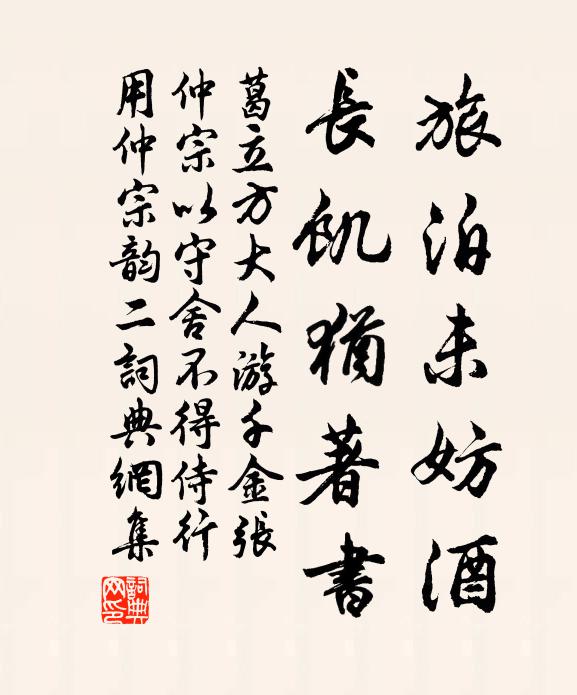 旅泊未妨酒
長飢猶著書
葛立方大人游千金張
仲宗以守舍不得侍行
用仲宗韵二詞典網集
詞典網印